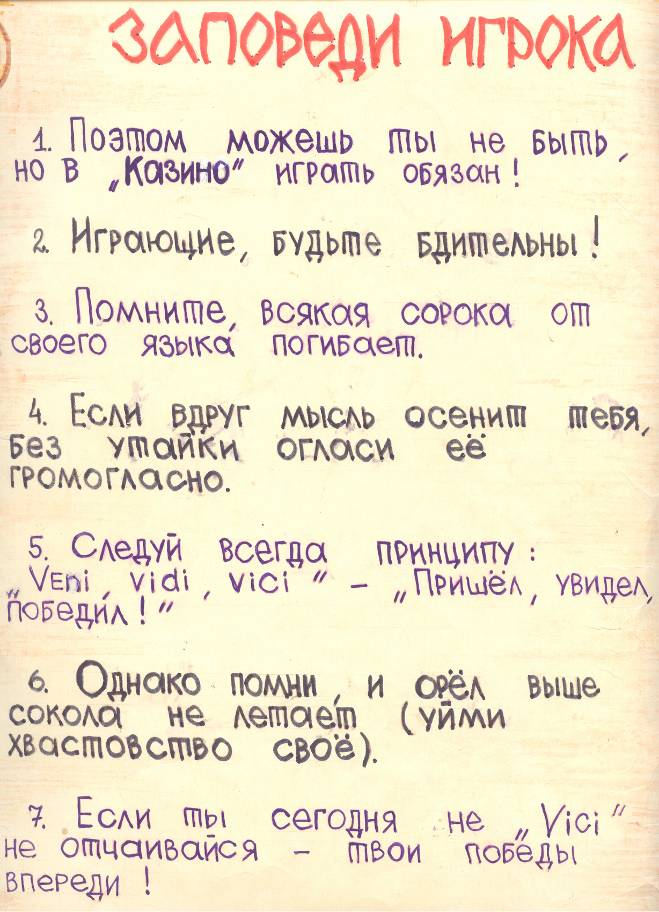 ЗАПОВЕДИ ИГРОКА
1. Поэтом можешь ты не быть,
но в „Казино" играть обязан!
2. Играющие, будьте бдительны!
3. Помните, всякая сорока от
своего языка погибает.
4. Если вдруг мысль осенит тебя,
без утайки огласи её
громогласно.
5. Следуй всегда принципу:
„Veni, vidi, vici" – „Пришёл, увидел,
победил!"
6. Однако помни, и орёл выше
сокола не летает (уйми
хвастовство своё).
7. Если ты сегодня не „Vici"
не отчаивайся – твои победы
впереди!